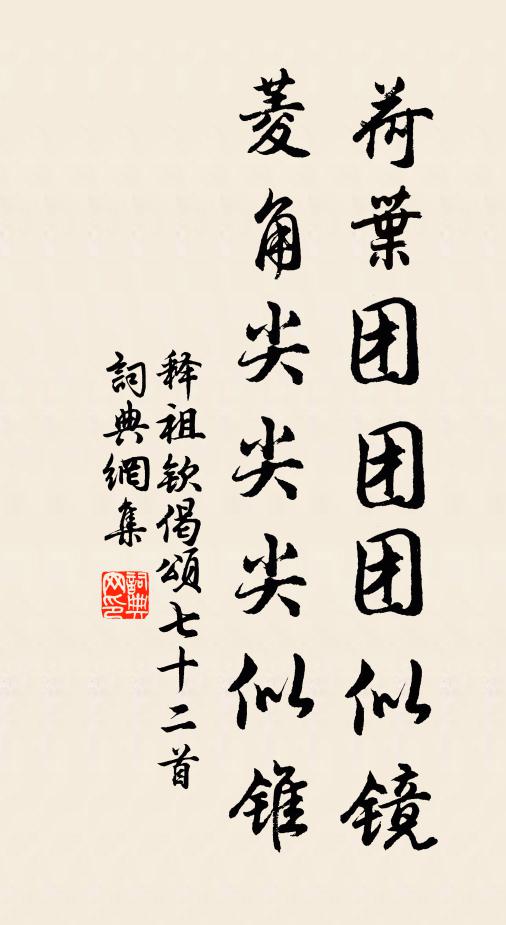 荷葉团团团似镜
菱角尖尖尖似锥
释祖钦偈頌七十二首
詞典網集
詞典
网印